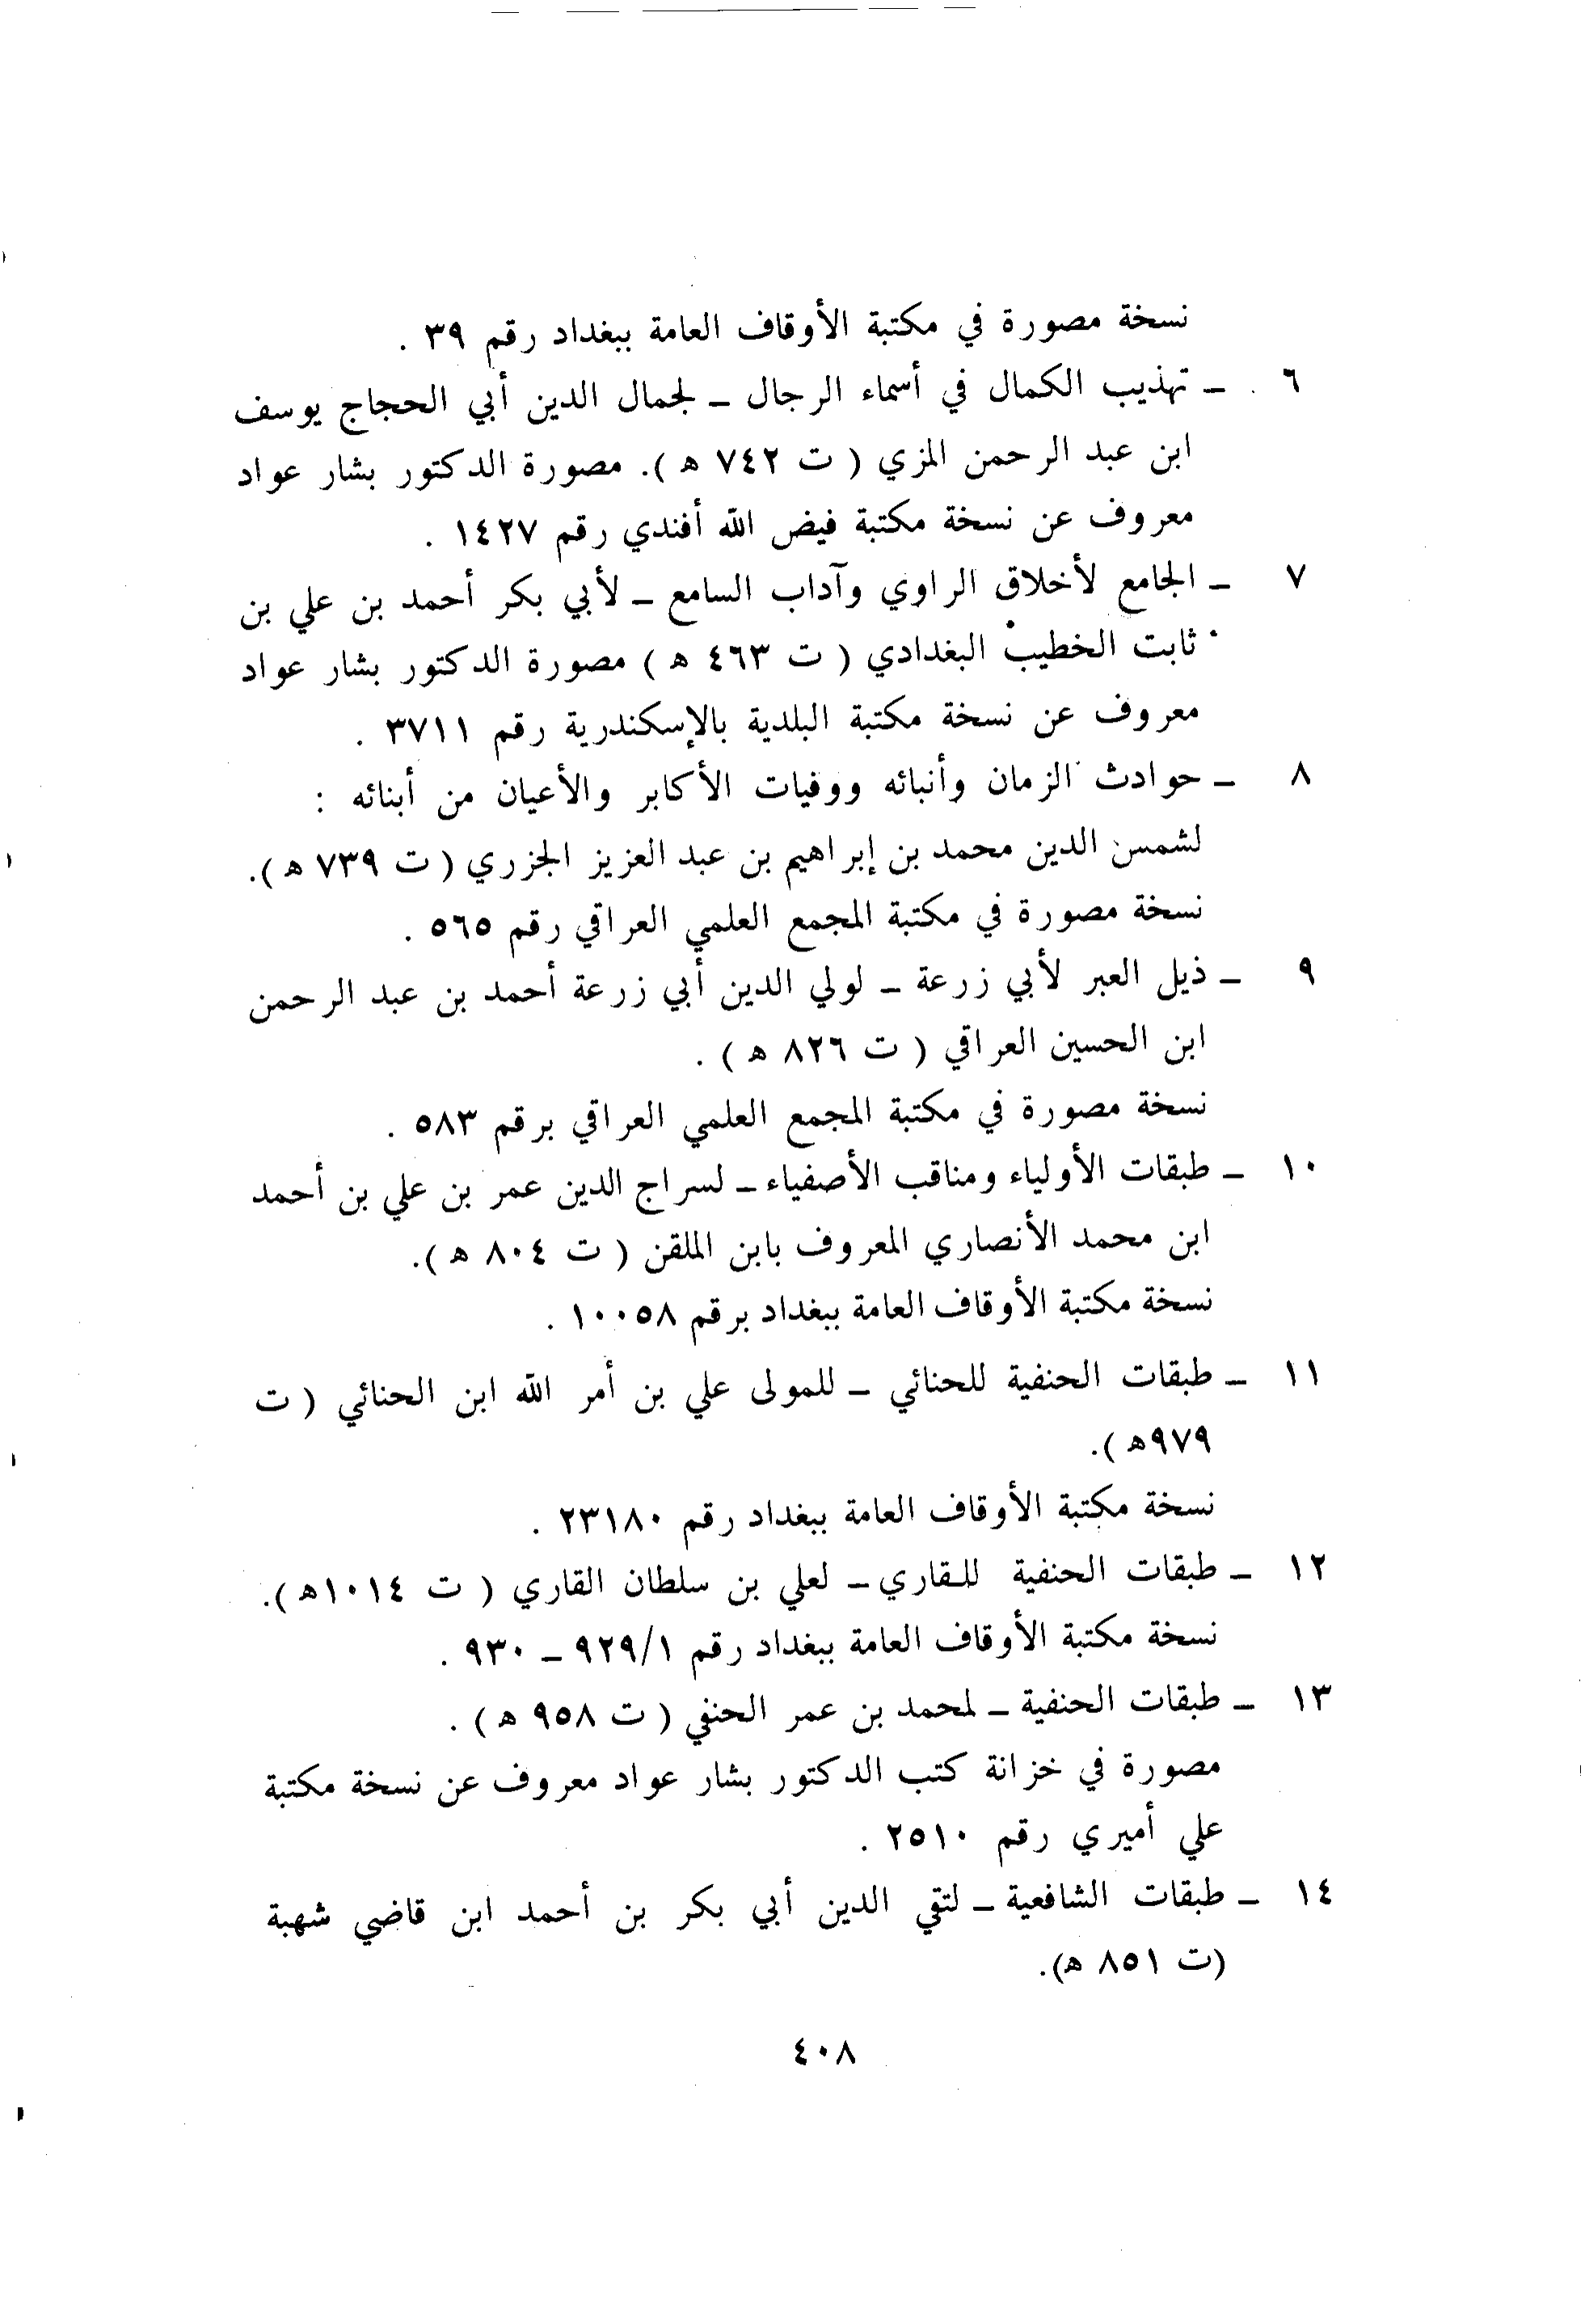 نسخة مصورة في مكتبة الأوقاف العامة ببغداد رقم ٣٩ .
٦ ـ تهذيب الكمال في أسماء الرجال ـ لجمال الدين أبي الحجاج يوسف
ابن عبد الرحمن المزي ( ت ٧٤٢ هـ ). مصورة الدكتور بشار عواد
معروف عن نسخة مكتبة فيض الله أفندي رقم ١٤٢٧ .
٧ ـ الجامع لأخلاق الراوي وآداب السامع ـ لأبي بكر أحمد بن علي بن
ثابت الخطيب البغدادي ( ت ٤٦٣ هـ ) مصورة الدكتور بشار عواد
معروف عن نسخة مكتبة البلدية بالإسكندرية رقم ٣٧١١ .
٨ ـ حوادث الزمان وأنبائه ووفيات الأكابر والأعيان من أبنائه :
لشمس الدين محمد بن إبراهيم بن عبد العزيز الجزري ( ت ٧٣٩ هـ ).
نسخة مصورة في مكتبة المجمع العلمي العراقي رقم ٥٦٥ .
٩ ـ ذيل العبر لأبي زرعة ـ لولي الدين أبي زرعة أحمد بن عبد الرحمن
ابن الحسين العراقي ( ت ٨٢٦ هـ ) .
نسخة مصورة في مكتبة المجمع العلمي العراقي برقم ٥٨٣ .
١٠ ـ طبقات الأولياء ومناقب الأصفياء ـ لسراج الدين عمر بن علي بن أحمد
ابن محمد الأنصاري المعروف بابن الملقن ( ت ٨٠٤ هـ ).
نسخة مكتبة الأوقاف العامة ببغداد برقم ١٠٠٥٨ .
١١ ـ طبقات الحنفية للحنائي ـ للمولى علي بن أمر الله ابن الحنائي ( ت
٩٧٩هـ ).
نسخة مكتبة الأوقاف العامة ببغداد رقم ٢٣١٨٠ .
١٢ ـ طبقات الحنفية للقاري ـ لعلي بن سلطان القاري ( ت ١٠١٤هـ ).
نسخة مكتبة الأوقاف العامة ببغداد رقم ٩٢٩/١ ـ ٩٣٠ .
١٣ ـ طبقات الحنفية ـ لمحمد بن عمر الحنفي ( ت ٩٥٨ هـ ) .
مصورة في خزانة كتب الدكتور بشار عواد معروف عن نسخة مكتبة
علي أميري رقم ٢٥١٠ .
١٤ ـ طبقات الشافعية ـ لتقي الدين أبي بكر بن أحمد ابن قاضي شهبة
(ت ٨٥١ هـ).
٤٠٨